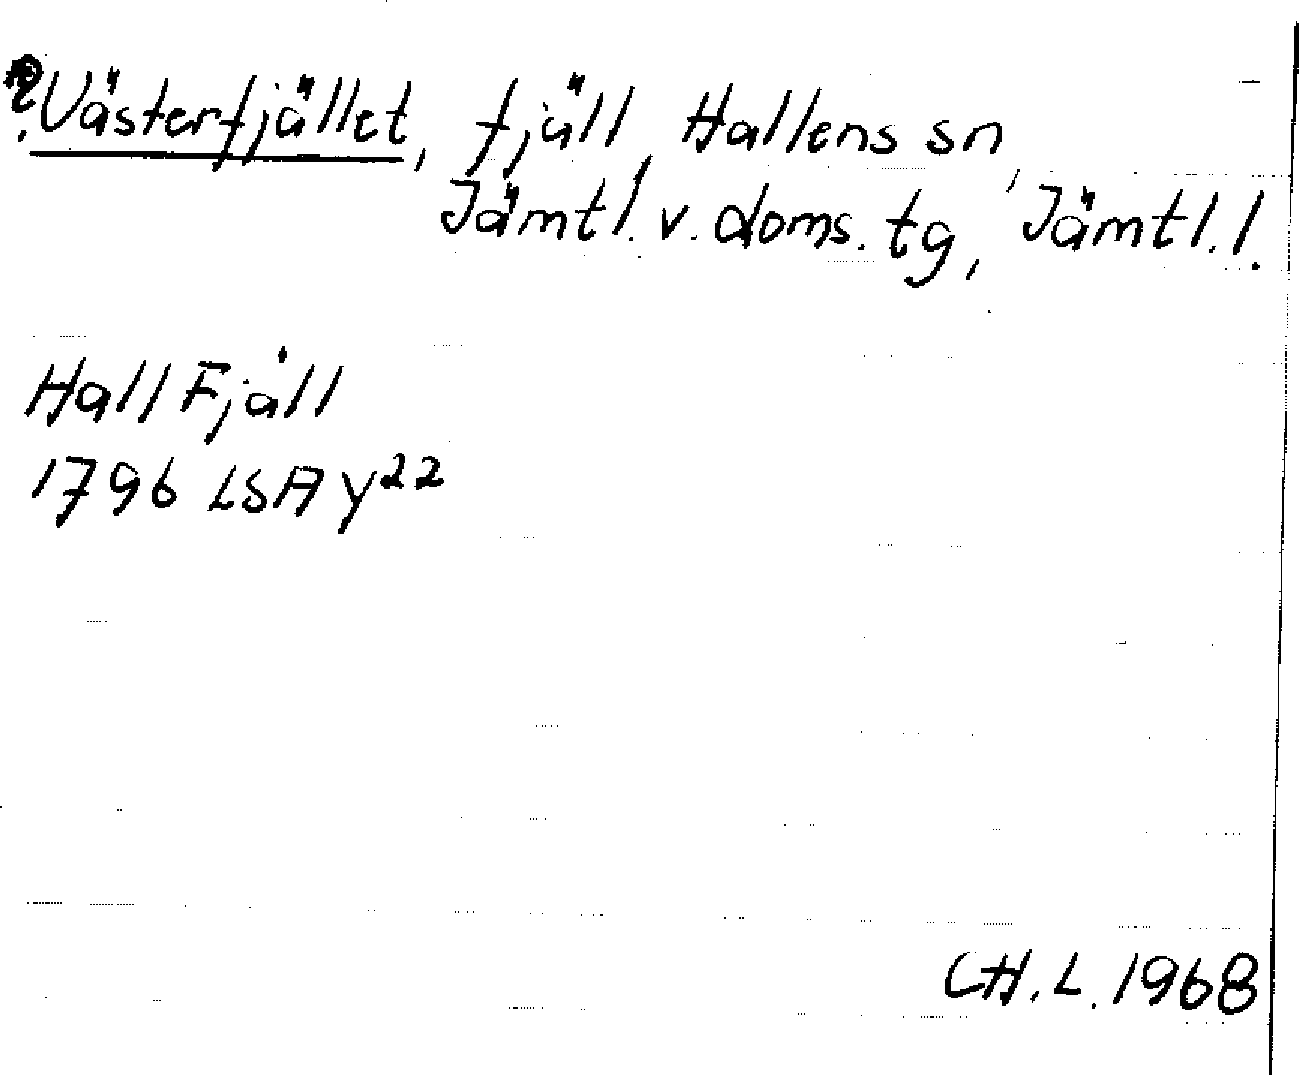 ?Västerfjället, fjäll, Hallens sn,
Jämtl. v. doms. tg, Jämtl. l.
Hall Fjäll
1796 LSA y22
CH. L. 1968